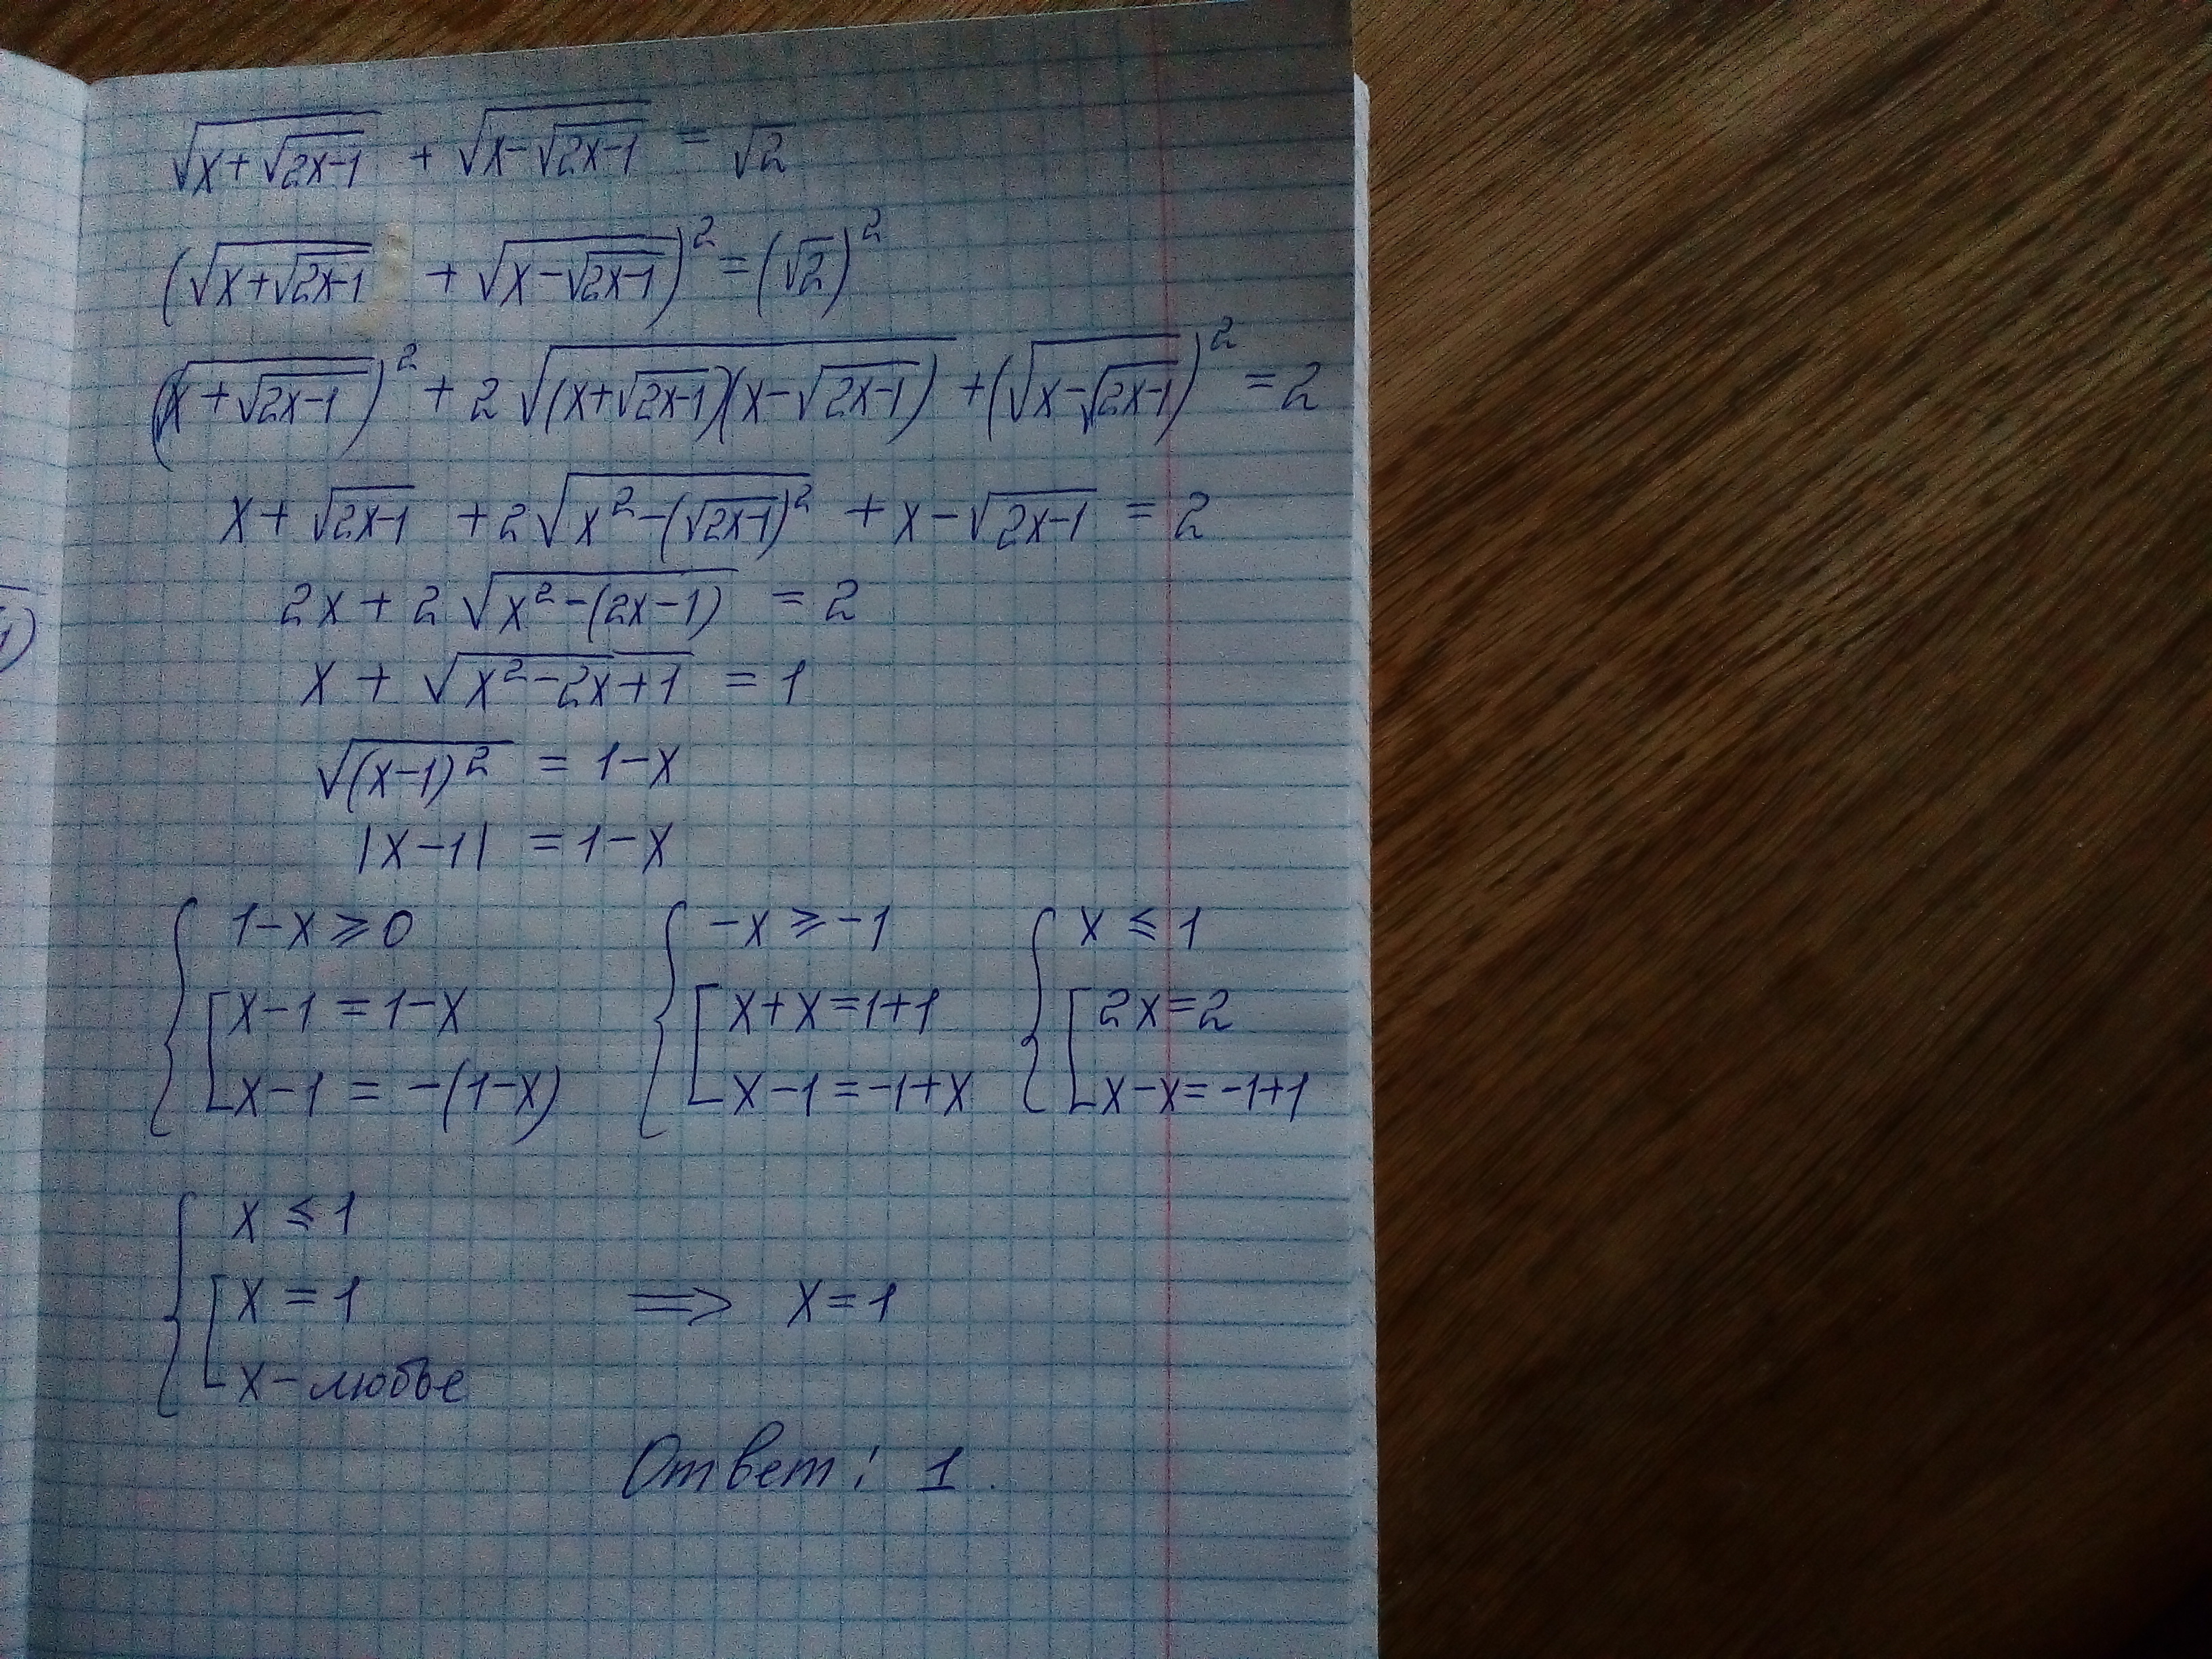 √(x+√(2x-1)) + √(x-√(2x-1)) = √2
(√(x+√(2x-1)) + √(x-√(2x-1)))² = (√2)²
(√(x+√(2x-1)))² + 2√((x+√(2x-1))(x-√(2x-1))) + (√(x-√(2x-1)))² = 2
x + √(2x-1) + 2√(x²-(√(2x-1))²) + x - √(2x-1) = 2
2x + 2√(x²-(2x-1)) = 2
x + √(x²-2x+1) = 1
√((x-1)²) = 1-x
|x-1| = 1-x
{ 1-x ⩾ 0 { -x ⩾ -1 { x ⩽ 1
[ x-1 = 1-x [ x+x = 1+1 [ 2x = 2
x-1 = -(1-x) x-1 = -1+x x-x = -1+1
{ x ⩽ 1
[ x = 1 ⟹ x = 1
x - любое
Ответ: 1.